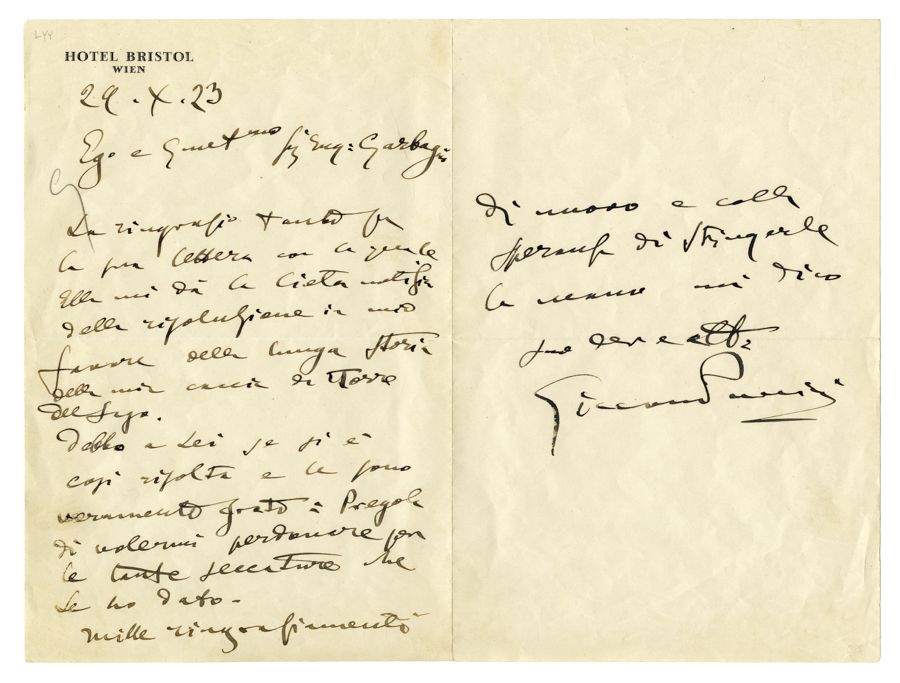 HOTEL BRISTOL
WIEN
29.X.23
Ego e Gmo Sig Eng: Garbagn
La ringrazio tanto per
la sua lettera con la quale
Ella mi dà la lieta notizia
della risoluzione in mio
favore della lunga storia
della mia caccia di Torre
del Lago.
Debbo a Lei se si è
così risolta e le sono
veramente grato = Pregola
di volermi perdonare per
le tante seccature che
Le ho dato -
Mille ringraziamenti
di nuovo e colla
speranza di stringerle
la mano mi dico
suo dev e
Giacomo Puccini